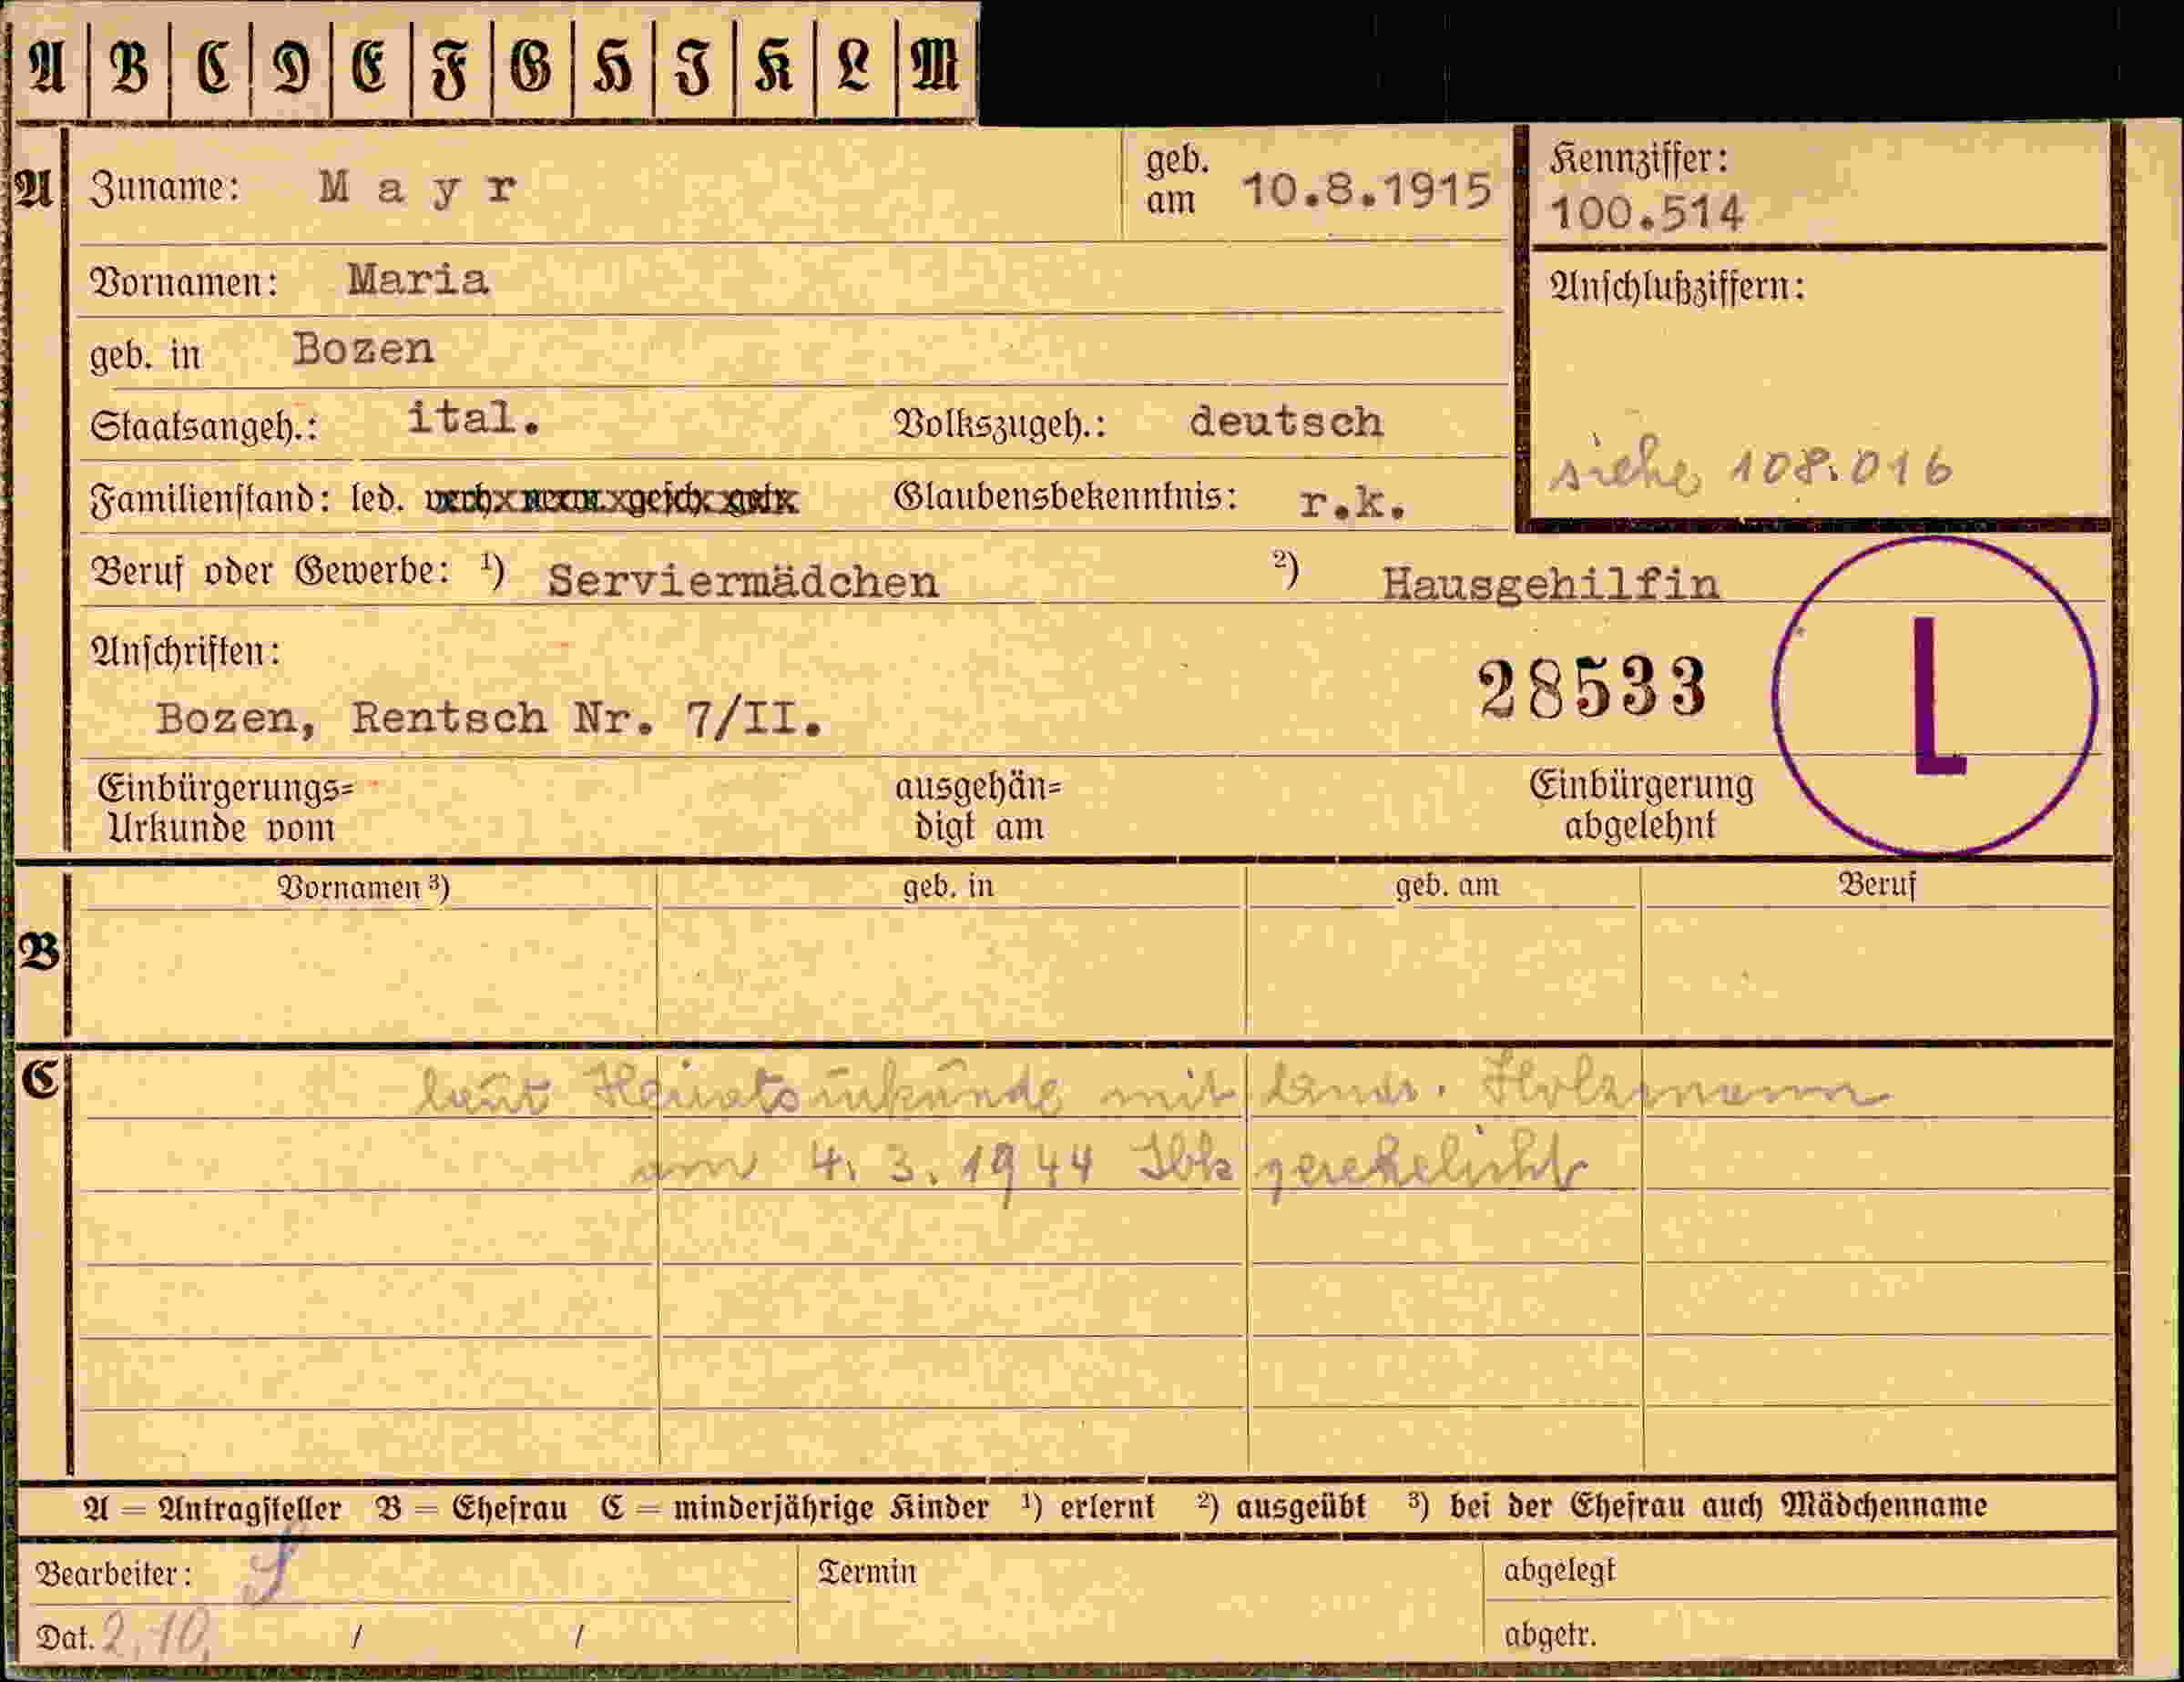 A B C D E F G H I K L M
A Zuname: Mayr geb. am 10.8.1915 Kennziffer: 100.514
Vornamen: Maria Anschlußziffern:
geb. in Bozen
Staatsangeh.: ital. Volkszugeh.: deutsch
siehe 108.016
Familienstand: led. verh. verw. gesch. getr. Glaubensbekenntnis: r.k.
Beruf oder Gewerbe: ¹) Serviermädchen ²) Hausgehilfin
Anschriften: 28533 L
Bozen, Rentsch Nr. 7/II.
Einbürgerungs= ausgehän= Einbürgerung
Urkunde vom digt am abgelehnt
Vornamen ³) geb. in geb. am Beruf
B
C laut Heiratsurkunde mit Holzmann
am 4. 3. 1944 Ibk verehelicht
A = Antragsteller B = Ehefrau C = minderjährige Kinder ¹) erlernt ²) ausgeübt ³) bei der Ehefrau auch Mädchenname
Bearbeiter: Termin abgelegt
Dat. 2.10. / / abgetr.